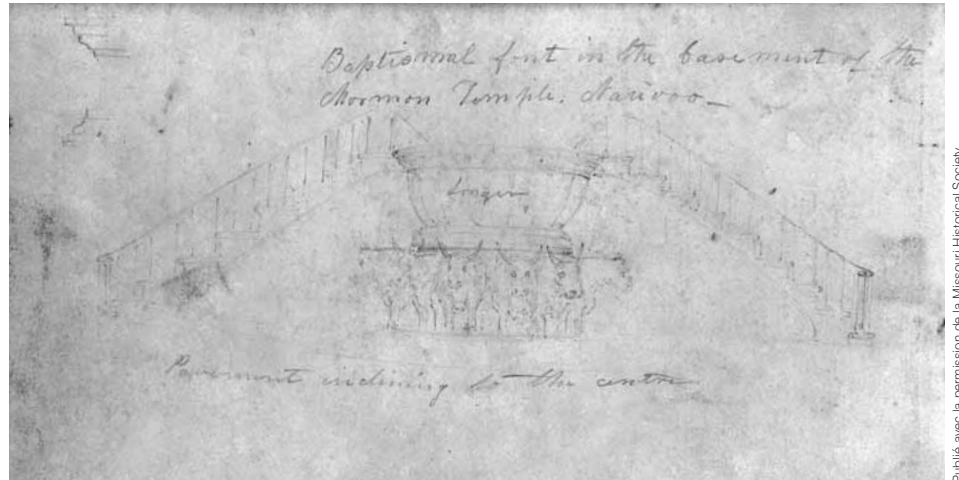 Baptismal font in the basement of the
Mormon Temple. Nauvoo_
Longer
Pavement inclining to the centre
Publié avec la permission de la Missouri Historical Society